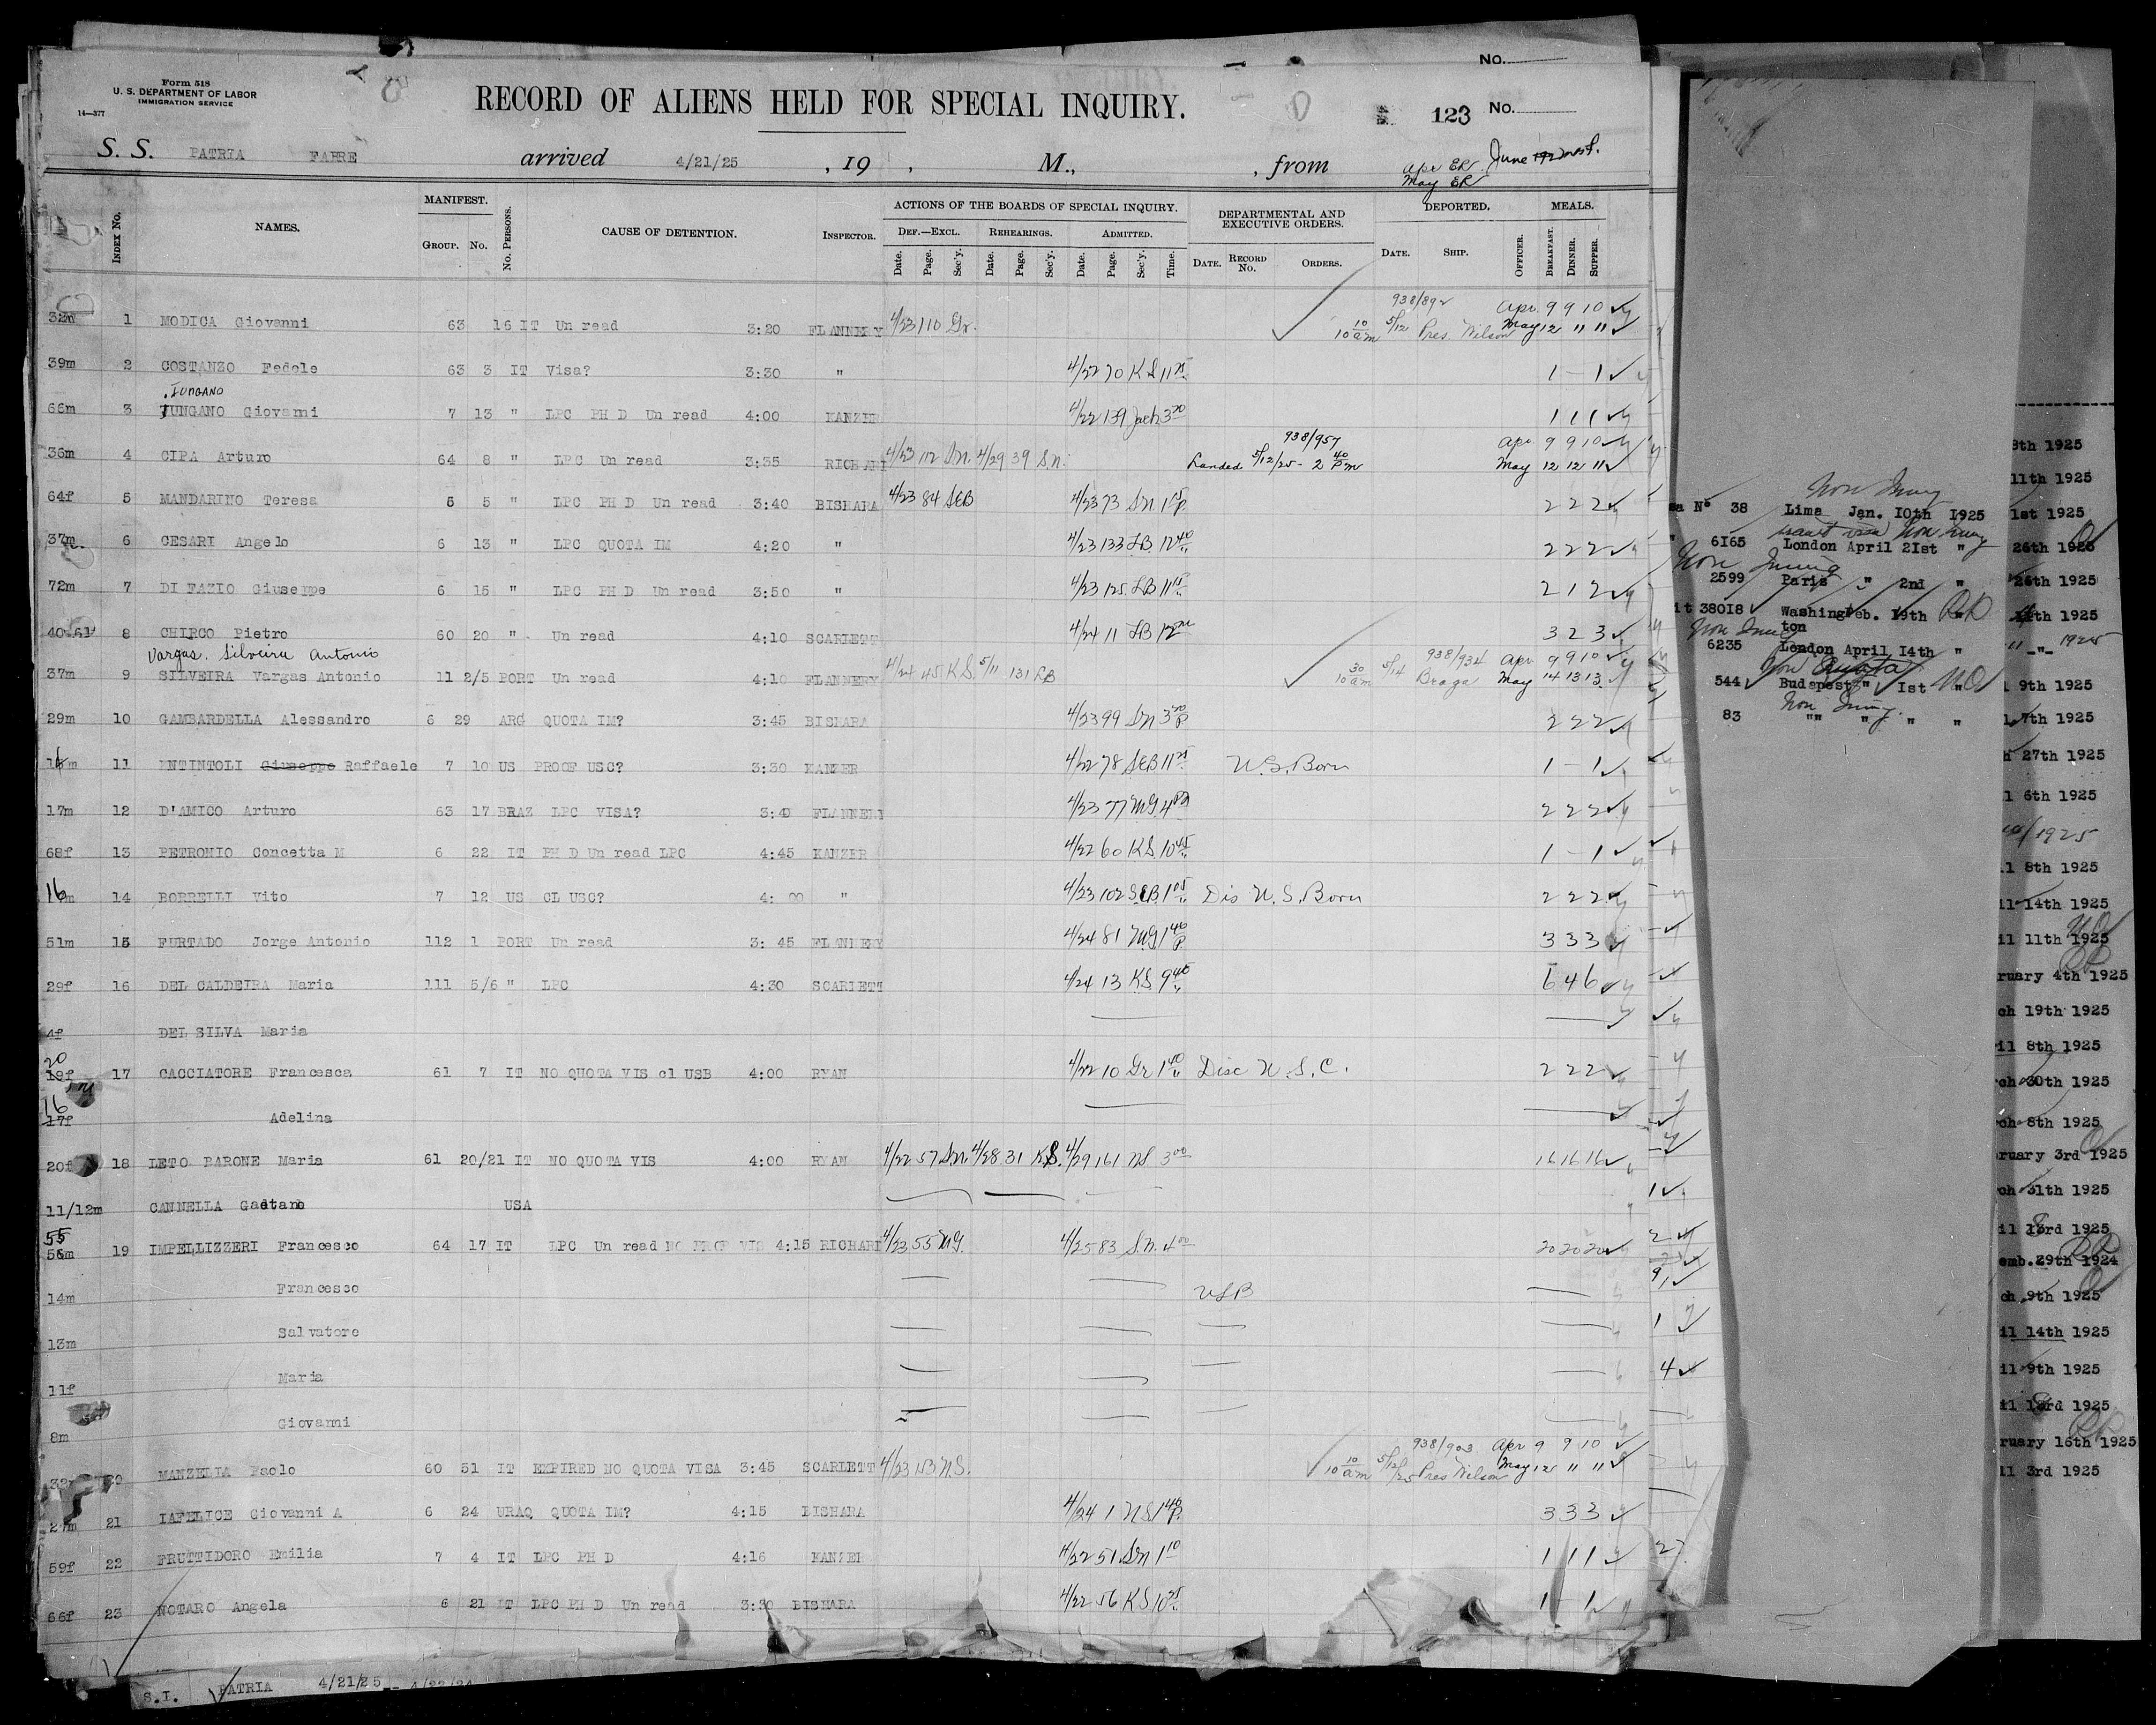 No.
Form 518
U. S. DEPARTMENT OF LABOR
IMMIGRATION SERVICE
14—377
RECORD OF ALIENS HELD FOR SPECIAL INQUIRY.
123 No.
S. S. PATRIA FABRE arrived 4/21/25 , 19 , M., , from
Apr ER June
May ER
Index No. NAMES. MANIFEST. Group. No. No. Persons. CAUSE OF DETENTION. Inspector. ACTIONS OF THE BOARDS OF SPECIAL INQUIRY. DEPARTMENTAL AND EXECUTIVE ORDERS. DEPORTED. MEALS.
Def.—Excl. Rehearings. Admitted.
Date. Page. Sec'y. Date. Page. Sec'y. Date. Page. Sec'y. Time. Date. Record No. Orders. Date. Ship. Officer. Breakfast. Dinner. Supper.
938/892 Apr 9 9 10
32m 1 MODICA Giovanni 63 16 IT Un read 3:20 FLANNERY 4/23 110 Gr. 10 10 am 5/12 Pres. Wilson May 12 " 11
39m 2 COSTANZO Fedele 63 3 IT Visa? 3:30 " 4/22 70 KS 11 25 1 – 1
IUNGANO
66m 3 IUNGANO Giovanni 7 13 " LPC PH D Un read 4:00 KANZER 4/22 139 3 20 1 1 1
938/957 Apr 9 9 10
36m 4 CIPA Arturo 64 8 " LPC Un read 3:35 RICHARI 4/23 112 S.N. 4/29 39 S.N. Landed 5/12/25 - 2 40 Pm May 12 12 11
64f 5 MANDARINO Teresa 6 5 " LPC PH D Un read 3:40 BISHARA 4/23 84 SEB 4/23 73 SN 1 15 P 2 2 2
37m 6 CESARI Angelo 6 13 " LPC QUOTA IM 4:20 " 4/23 133 LB 12 40 2 2 2
72m 7 DI FAZIO Giuseppe 6 15 " LPC PH D Un read 3:50 " 4/23 125 LB 11 15 2 1 2
40 8 CHIRCO Pietro 60 20 " Un read 4:10 SCARLETT 4/24 11 LB 12 3 2 3
Vargas. Silveira Antonio 938/934 Apr 9 9 10
37m 9 SILVEIRA Vargas Antonio 11 2/5 PORT Un read 4:10 FLANNERY 4/24 45 KS 5/11 131 LB 10 30 am 5/14 Braga May 14 13 13
29m 10 GAMBARDELLA Alessandro 6 29 ARG QUOTA IM? 3:45 BISHARA 4/23 99 SN 3 20 P 2 2 2
11 ENTINTOLI Giuseppe Raffaele 7 10 US PROOF USC? 3:30 KANZER 4/22 78 SEB 11 25 U.S. Born 1 – 1
17m 12 D'AMICO Arturo 63 17 BRAZ LPC VISA? 3:40 FLANNERY 4/23 77 MG 4 2 2 2
68f 13 PETRONIO Concetta M 6 22 IT PH D Un read LPC 4:45 KANZER 4/22 60 KS 10 45 1 – 1
16 m 14 BORRELLI Vito 7 12 US CL USC? 4: 00 " 4/23 102 SEB 1 05 Dis U.S. Born 2 2 2
51m 15 FURTADO Jorge Antonio 112 1 PORT Un read 3: 45 FLANNERY 4/24 81 MG 1 40 P 3 3 3
29f 16 DEL CALDEIRA Maria 111 5/6 " LPC 4:30 SCARLETT 4/24 13 KS 9 40 6 4 6
4f DEL SILVA Maria
20
18f 17 CACCIATORE Francesca 61 7 IT NO QUOTA VIS cl USB 4:00 RYAN 4/22 10 Gr 1 40 Disc U.S.C. 2 2 2
16
17f Adelina
20f 18 LETO BARONE Maria 61 20/21 IT NO QUOTA VIS 4:00 RYAN 4/22 57 S.N. 4/28 31 KS. 4/29 161 NS 3 00 16 16 16
11/12m CANNELLA Gaetano USA
55
56m 19 IMPELLIZZERI Francesco 64 17 IT LPC Un read NO PROP VIS 4:15 RICHARI 4/23 55 MG. 4/25 83 S.N. 4 00 20 20 20
14m Francesco USB
13m Salvatore
11f Maria
8m Giovanni
938/903 Apr 9 9 10
20 MANZELLA Paolo 60 51 IT EXPIRED NO QUOTA VISA 3:45 SCARLETT 4/23 N.S. 10 10 am 5/12/25 Pres Wilson May 12 " 11
27m 21 IAFELICE Giovanni A 6 24 URAQ QUOTA IM? 4:15 BISHARA 4/24 1 NS 1 40 P. 3 3 3
59f 22 FRUTTIDORO Emilia 7 4 IT LPC PH D 4:16 KANZER 4/22 51 SN 1 10 1 1 1
66f 23 NOTARO Angela 6 21 IT LPC PH D Un read 3:30 BISHARA 4/22 56 KS 10 25 1 – 1
S.I. PATRIA 4/21/25
Non Immig
No 38 Lima Jan. 10th 1925
Non Immig
6165 London April 21st "
Non Immig
2599 Paris " 2nd "
it 38018 Washington Feb. 19th "
Non Immig
6235 London April 14th "
Non Quota
544 Budapest " 1st "
Non Immig.
83 "" " " "
8th 1925
11th 1925
1st 1925
26th 1925
26th 1925
11th 1925
" -"- 1925
9th 1925
7th 1925
27th 1925
6th 1925
1925
8th 1925
14th 1925
il 11th 1925
ruary 4th 1925
ch 19th 1925
il 8th 1925
ch 30th 1925
ch 8th 1925
ruary 3rd 1925
ch 31th 1925
il 13rd 1925
emb. 29th 1924
ch 9th 1925
il 14th 1925
il 9th 1925
il 13rd 1925
ruary 16th 1925
il 3rd 1925